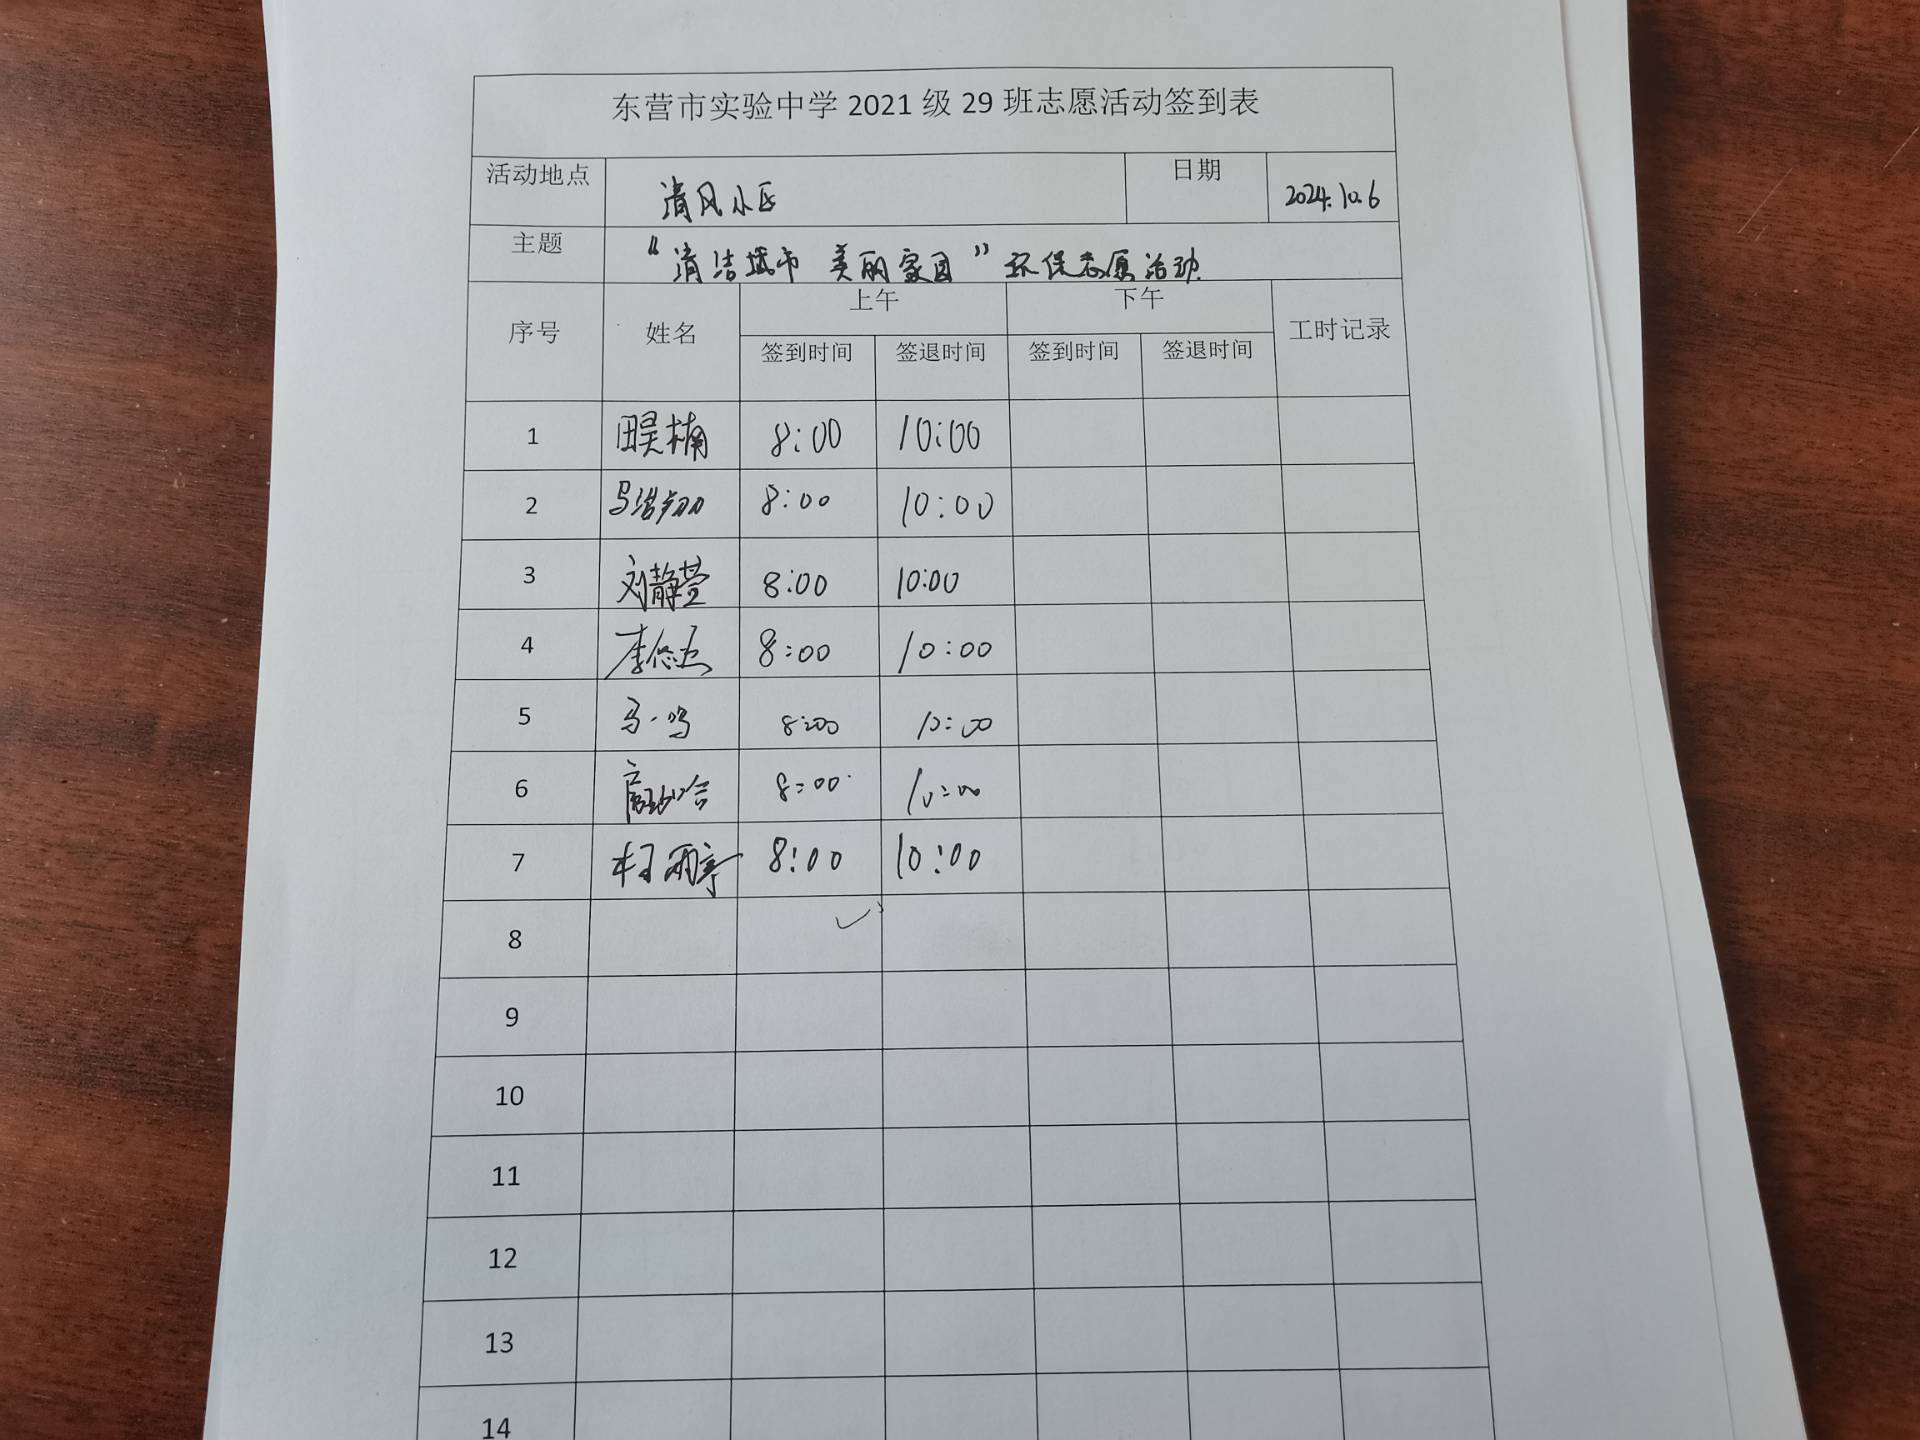 东营市实验中学 2021 级 29 班志愿活动签到表
活动地点 清风小区 日期 2024.10.6
主题 “清洁城市 美丽家园”环保志愿活动
序号 姓名 上午 下午 工时记录
签到时间 签退时间 签到时间 签退时间
1 田昊楠 8:00 10:00
2 马浩翔 8:00 10:00
3 刘静萱 8:00 10:00
4 8:00 10:00
5 马一鸣 8:00 10:00
6 8:00 10:00
7 8:00 10:00
8
9
10
11
12
13
14